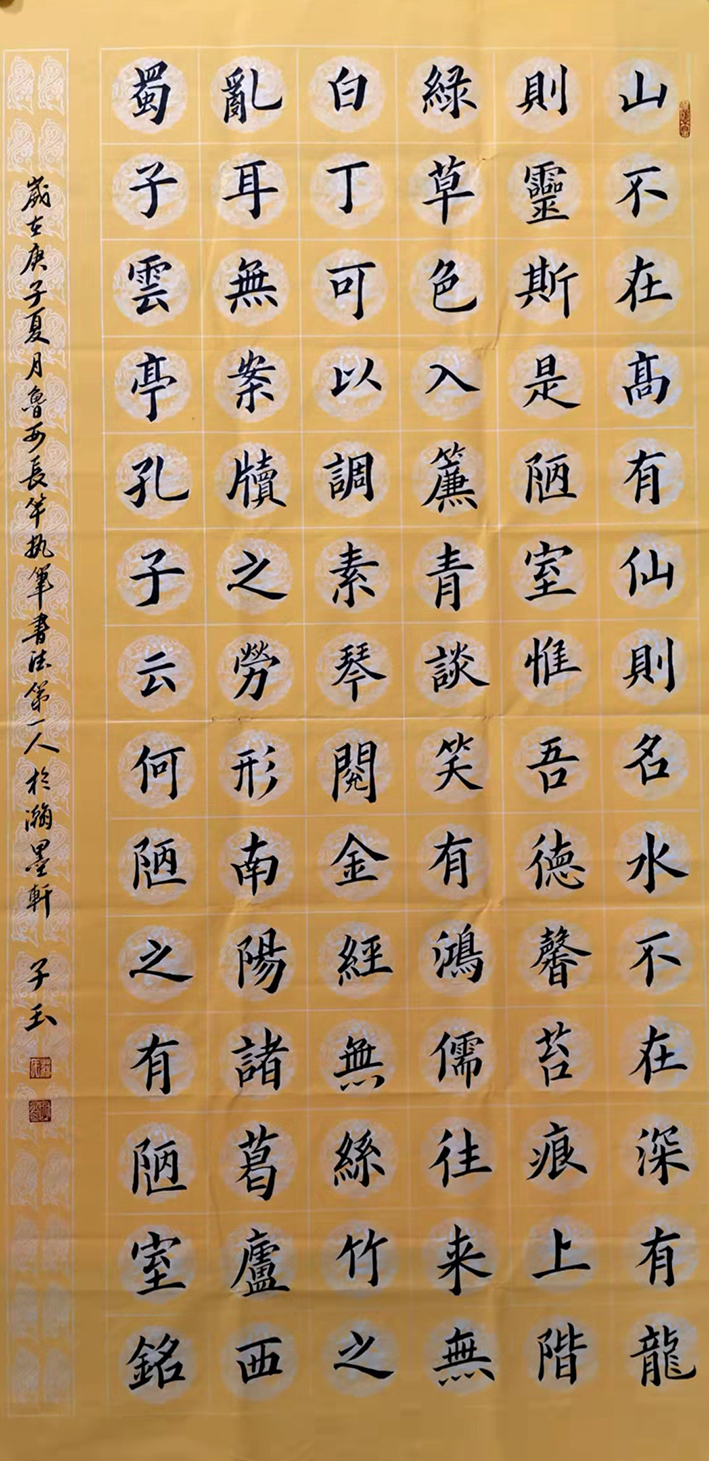 山不在髙有仙則名水不在深有龍
則靈斯是陋室惟吾德馨苔痕上階
綠草色入簾青談笑有鴻儒往来無
白丁可以調素琴閱金經無絲竹之
亂耳無案牘之勞形南陽諸葛廬西
蜀子雲亭孔子云何陋之有陋室銘
歲在庚子夏月魯西長竿执筆書法第一人於瀚墨軒 子玉